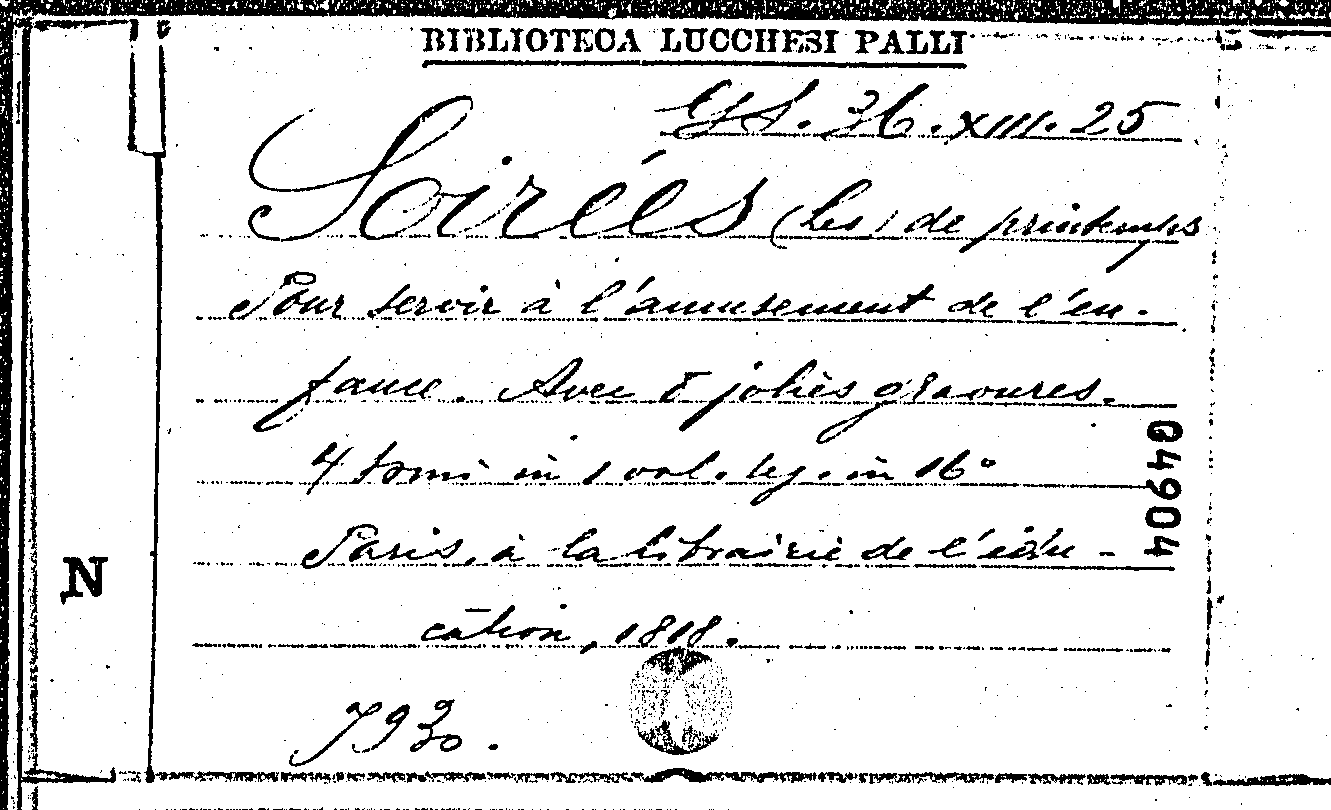 BIBLIOTECA LUCCHESI PALLI
36. XIII. 25
Soirées (Les) de printemps
Pour servir à l'amusement de l'en-
fance. Avec 8 jolies gravures.
4 tomi in 1 vol. leg. in 16°
Paris, à la librairie de l'édu-
cation, 1818.
04904
N